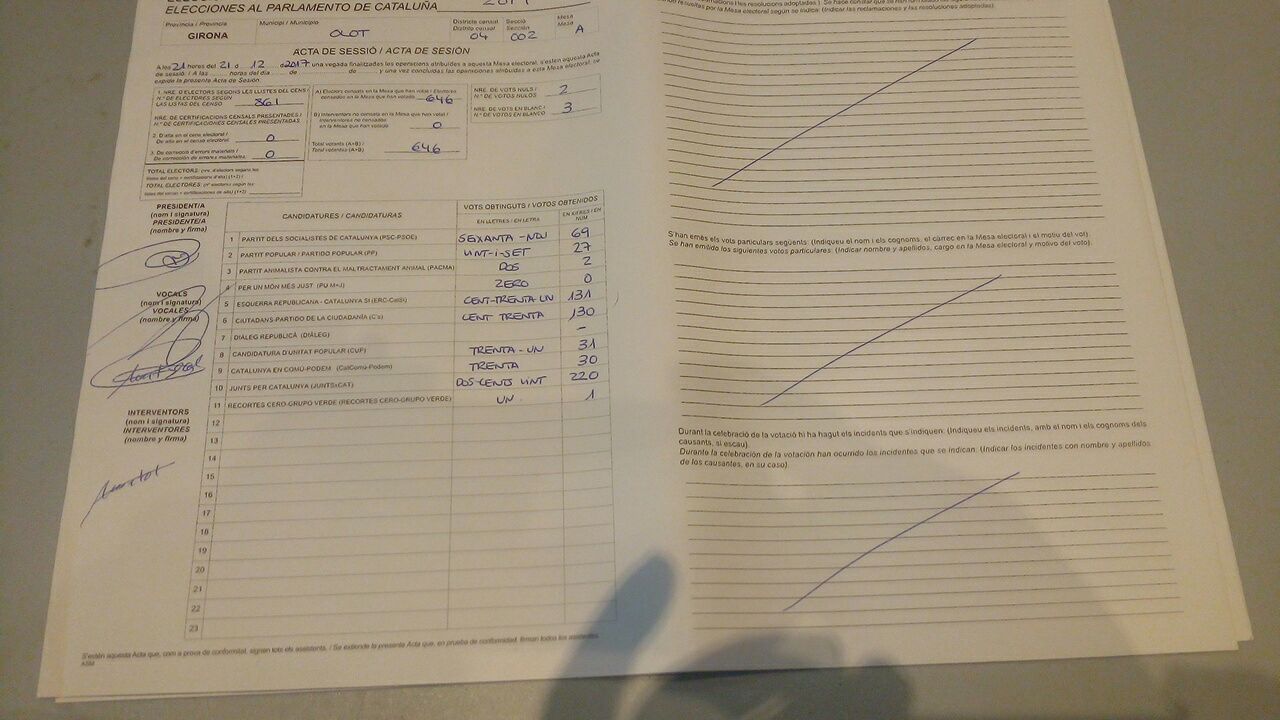 ELECCIONES AL PARLAMENTO DE CATALUÑA
Província / Provincia
GIRONA
Municipi / Municipio
OLOT
Districte censal
Distrito censal
04
Secció
Sección
002
Mesa
Mesa
A
ACTA DE SESSIÓ / ACTA DE SESIÓN
A les 21 hores del 21 d 12 2017 una vegada finalitzades les operacions atribuïdes a aquesta Mesa electoral, s'estén aquesta Acta
de sessió. / A las horas del día de de y una vez concluidas las operaciones atribuidas a esta Mesa electoral, se
expide la presente Acta de Sesión.
1. NRE. D'ELECTORS SEGONS LES LLISTES DEL CENS
N.º DE ELECTORES SEGÚN
LAS LISTAS DEL CENSO 861
NRE. DE CERTIFICACIONS CENSALS PRESENTADES /
N.º DE CERTIFICACIONES CENSALES PRESENTADAS
2. D'alta en el cens electoral /
De alta en el censo electoral 0
3. De correcció d'errors materials /
De corrección de errores materiales 0
TOTAL ELECTORS: (nre. d'electors segons les
llistes del cens + certificacions d'alta) (1+2) /
TOTAL ELECTORES: (nº electores según las
listas del censo + certificaciones de alta) (1+2)
A) Electors censats en la Mesa que han votat / Electores
censados en la Mesa que han votado 646
B) Interventors no censats en la Mesa que han votat /
Interventores no censados
en la Mesa que han votado 0
Total votants (A+B) /
Total votantes (A+B) 646
NRE. DE VOTS NULS /
N.º DE VOTOS NULOS 2
NRE. DE VOTS EN BLANC /
N.º DE VOTOS EN BLANCO 3
PRESIDENT/A
(nom i signatura)
PRESIDENTE/A
(nombre y firma)
VOCALS
(nom i signatura)
VOCALES
(nombre y firma)
INTERVENTORS
(nom i signatura)
INTERVENTORES
(nombre y firma)
CANDIDATURES / CANDIDATURAS
VOTS OBTINGUTS / VOTOS OBTENIDOS
EN LLETRES / EN LETRA
EN XIFRES / EN NÚM
1 PARTIT DELS SOCIALISTES DE CATALUNYA (PSC-PSOE) SEXANTA-NOU 69
2 PARTIT POPULAR / PARTIDO POPULAR (PP) VINT-I-SET 27
3 PARTIT ANIMALISTA CONTRA EL MALTRACTAMENT ANIMAL (PACMA) DOS 2
4 PER UN MÓN MÉS JUST (PUM+J) ZERO 0
5 ESQUERRA REPUBLICANA - CATALUNYA SÍ (ERC-CatSí) CENT-TRENTA UN 131
6 CIUTADANS-PARTIDO DE LA CIUDADANÍA (C's) CENT TRENTA 130
7 DIÀLEG REPUBLICÀ (DIÀLEG) -
8 CANDIDATURA D'UNITAT POPULAR (CUP) TRENTA-UN 31
9 CATALUNYA EN COMÚ-PODEM (CatComú-Podem) TRENTA 30
10 JUNTS PER CATALUNYA (JUNTSxCAT) DOS-CENTS VINT 220
11 RECORTES CERO-GRUPO VERDE (RECORTES CERO-GRUPO VERDE) UN 1
12
13
14
15
16
17
18
19
20
21
22
23
S'estén aquesta Acta que, com a prova de conformitat, signen tots els assistents. / Se extiende la presente Acta que, en prueba de conformidad, firman todos los asistentes.
S'han emès els vots particulars següents: (Indiqueu el nom i els cognoms, el càrrec en la Mesa electoral i el motiu del vot).
Se han emitido los siguientes votos particulares: (Indicar nombre y apellidos, cargo en la Mesa electoral y motivo del voto).
Durant la celebració de la votació hi ha hagut els incidents que s'indiquen: (Indiqueu els incidents, amb el nom i els cognoms dels
causants, si escau).
Durante la celebración de la votación han ocurrido los incidentes que se indican: (Indicar los incidentes con nombre y apellidos
de los causantes, en su caso).